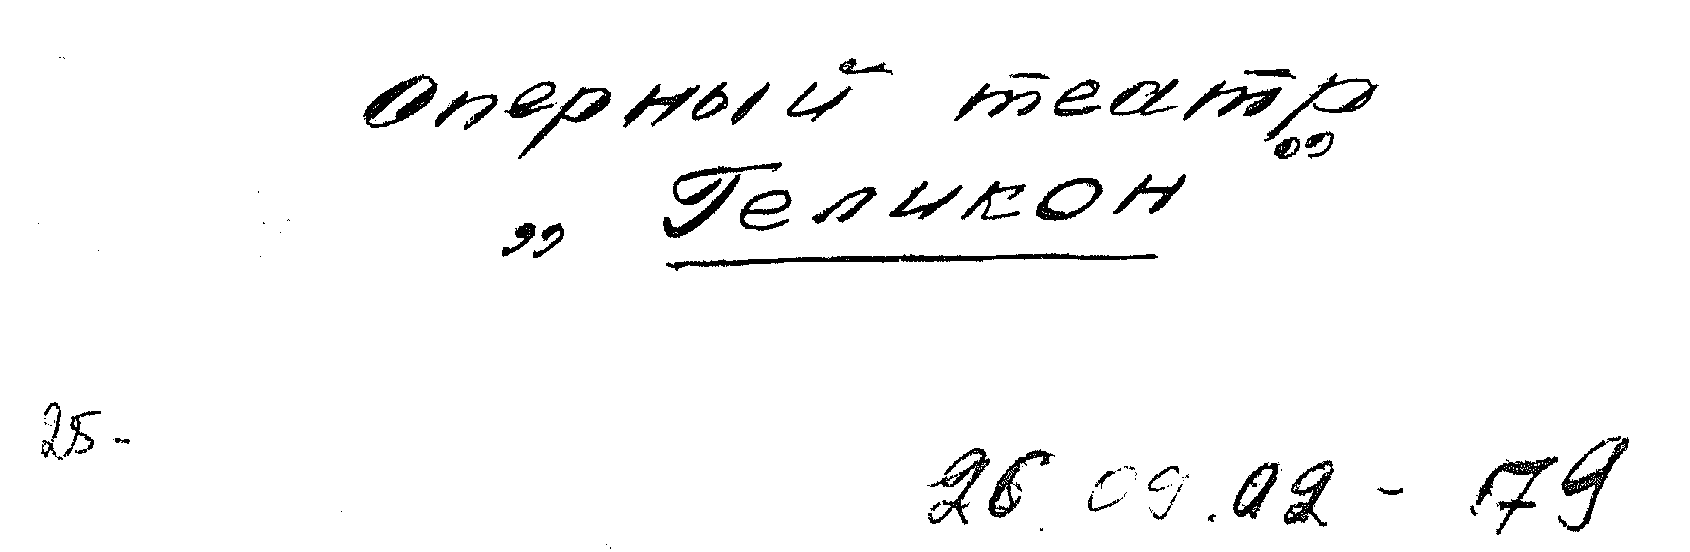 Оперный театр
„Геликон”
25-
26.09.02 - 79